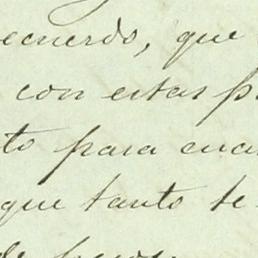 recuerdo, que
con estas p
to para cua
que tanto te
de